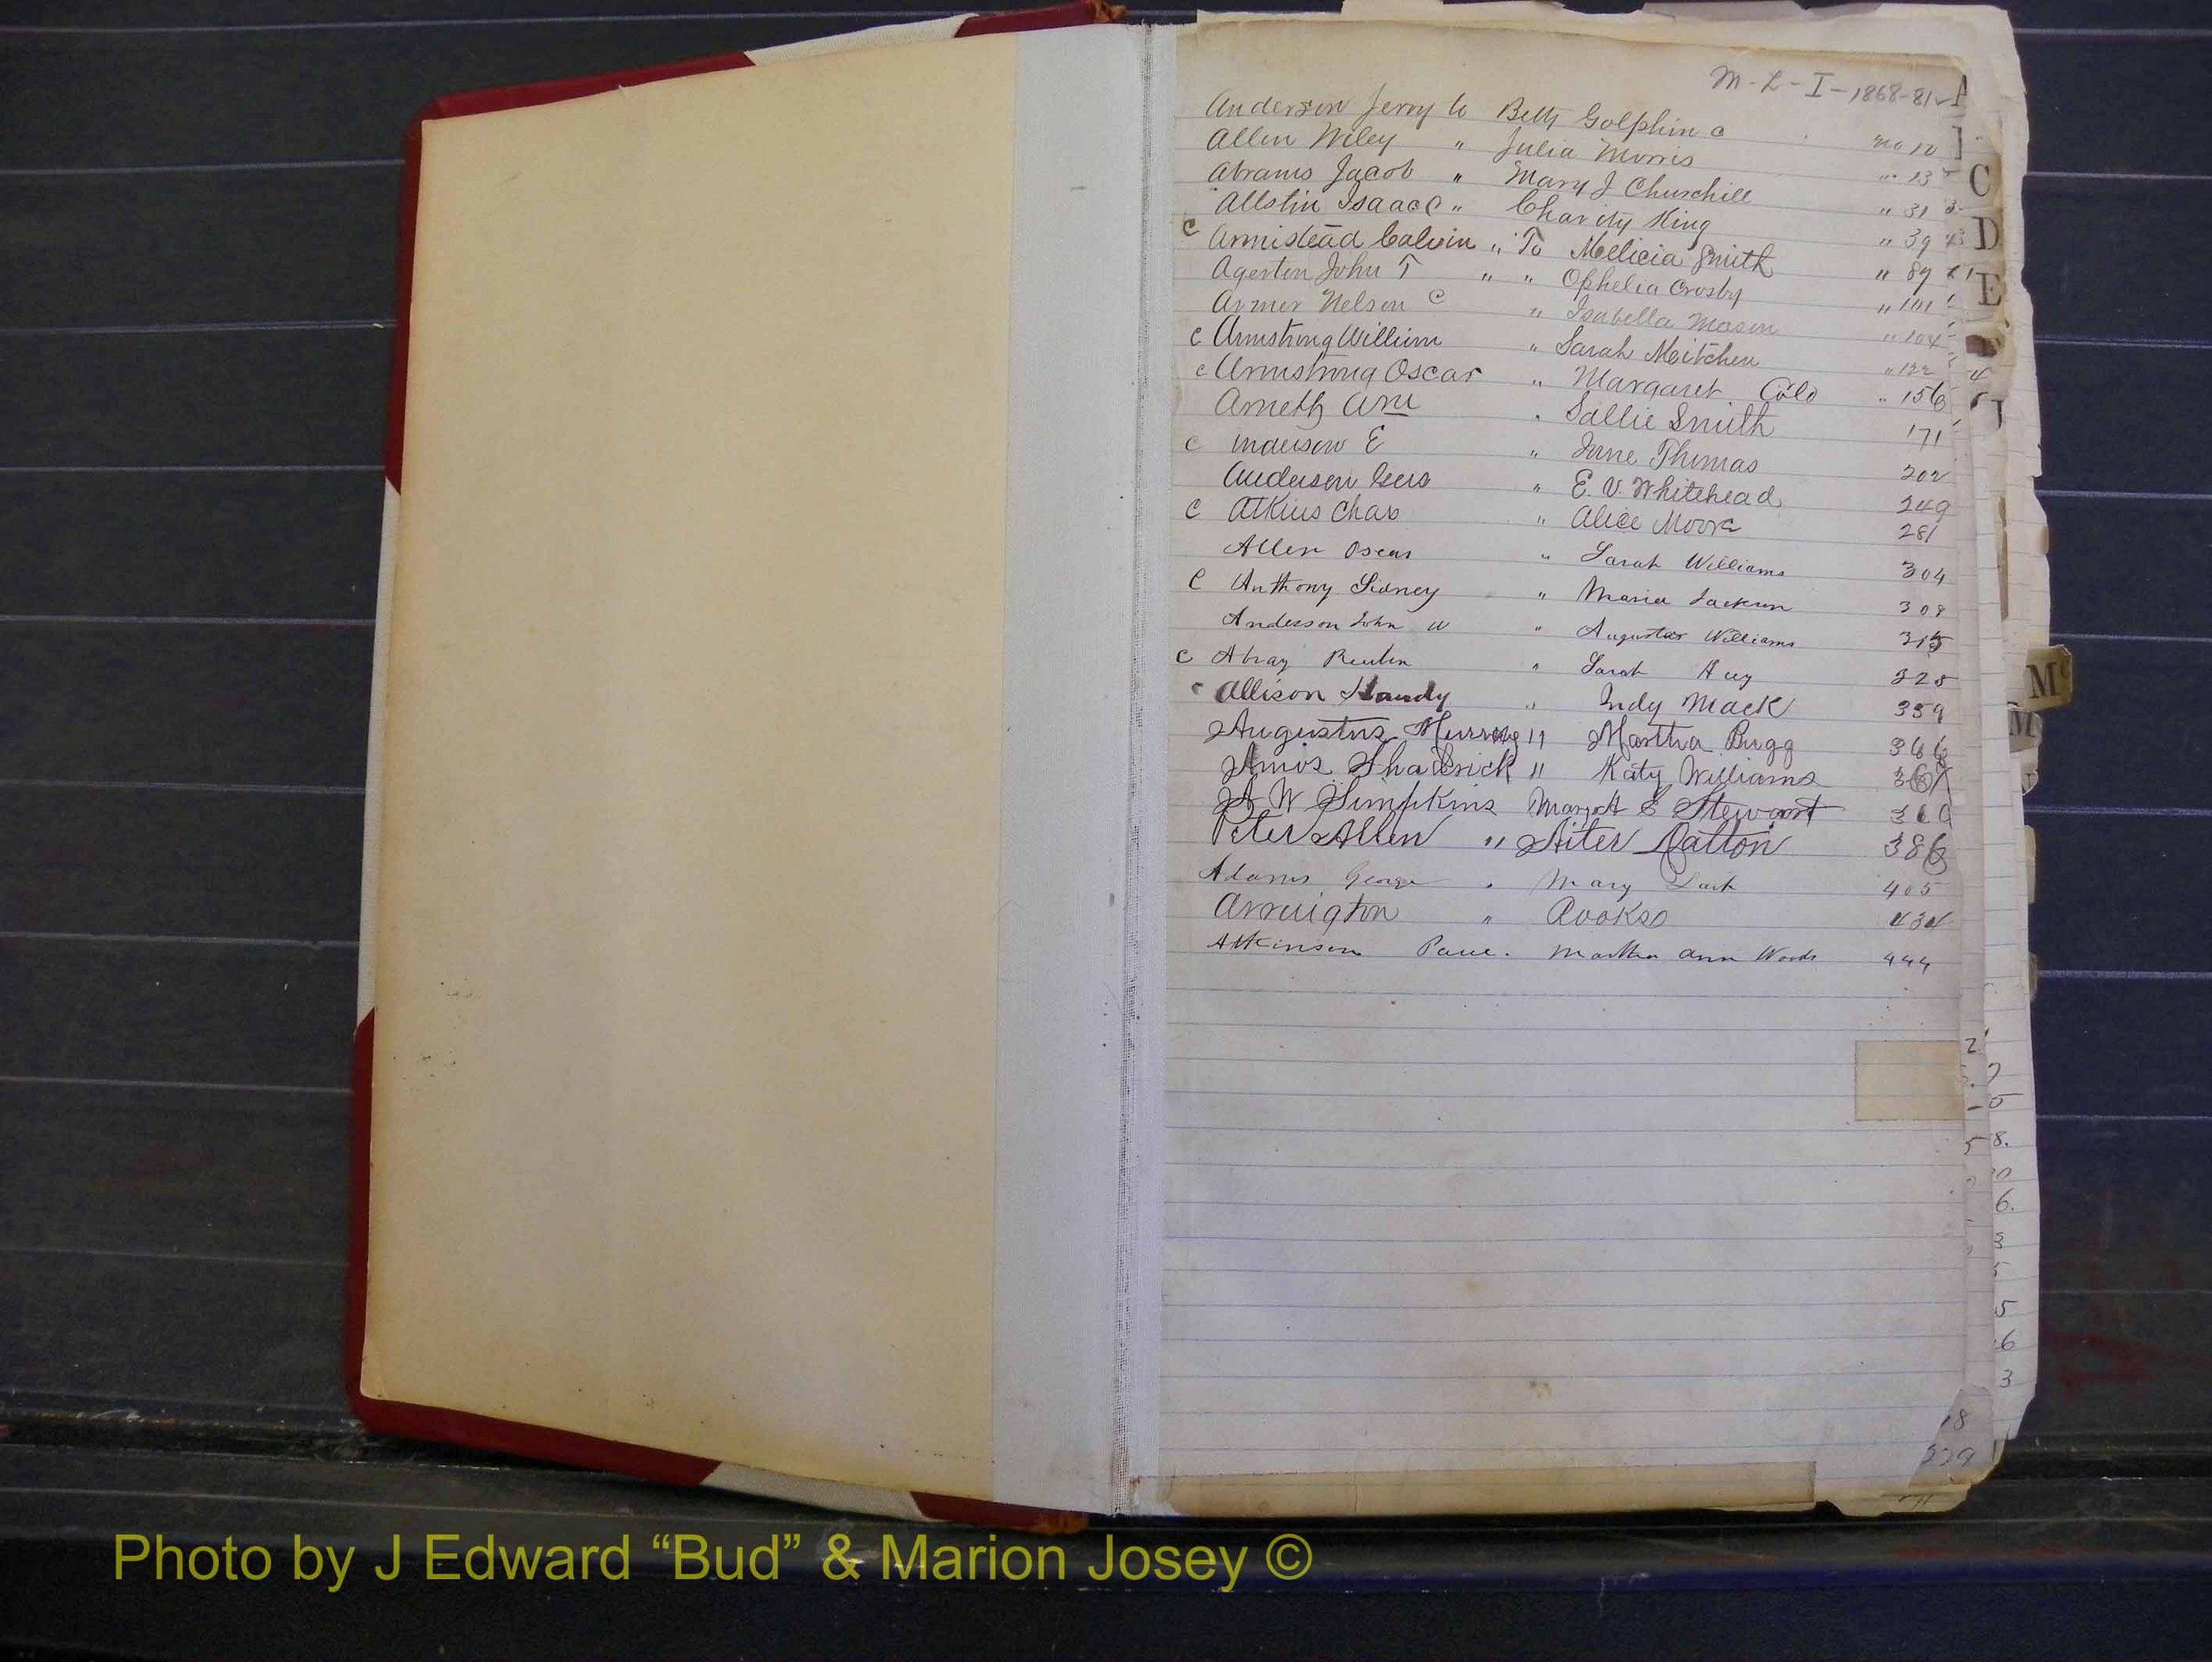 M-L-I-1868-81
Anderson Jerry to Betty Golphin c no 10
Allen Wiley " Julia Morris " 13
Abrams Jacob " Mary J Churchill " 31
Allstin Isaac C " Charity King " 39
c Armistead Calvin " To Melicia Smith " 89
Agerton John T " " Ophelia Crosby " 101
Armer Nelson C " Isabella Mason " 104
c Armstrong William " Sarah Meitchen " 122
c Armstrong Oscar " Margaret Cole " 156
Ameth Wm " Sallie Smith 171
c Anderson E " Jane Thomas 202
Anderson Geo " E. V. Whitehead 249
C Atkins Chas " Alice Moore 281
Allen Oscar " Sarah Williams 304
C Anthony Sidney " Maria Jackson 308
Anderson John W " Augustus Williams 315
C Abray Reuben " Sarah 325
c Allison Handy " Indy Mack 339
Augustus " Martha Bugg 366
Amos Shadrick " Katy Williams
A W Simpkins Margret E Stewart
Peter Allen " Aiter Datton 386
Adams George " Mary 405
Arrington " Rooks 434
Atkinson Martha Ann Woods 444
C
D
E
Mc
M
229
Photo by J Edward “Bud” & Marion Josey ©